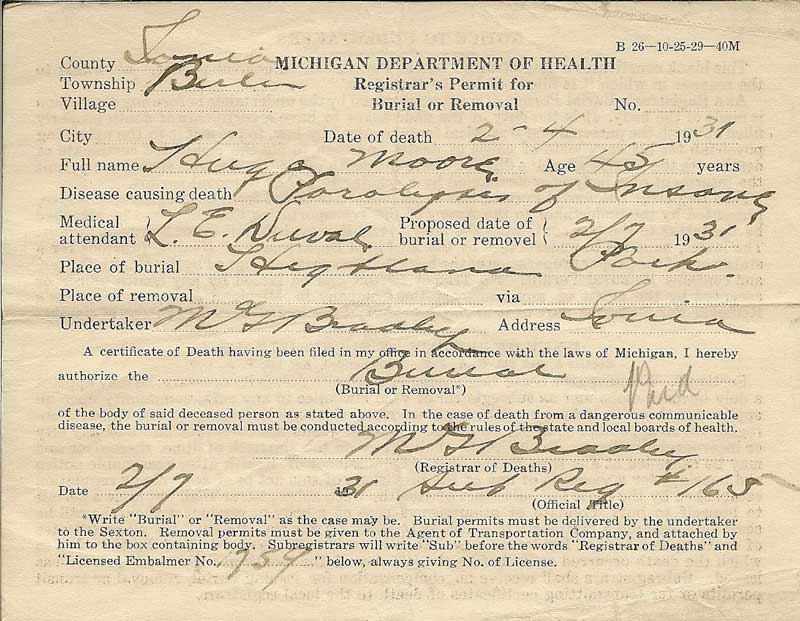 B 26—10-25-29—40M
County Ionia
MICHIGAN DEPARTMENT OF HEALTH
Township Berlin
Registrar's Permit for
Village
Burial or Removal
No.
City
Date of death 2-4 1931
Full name Hugo Moore Age 45 years
Disease causing death Paralysis of Insane
Medical attendant L. E. Duval
Proposed date of burial or removel 2/7 1931
Place of burial Highland Park.
Place of removal via
Undertaker McG Bradley Address Ionia
A certificate of Death having been filed in my office in accordance with the laws of Michigan, I hereby
authorize the Burial
(Burial or Removal*)
Paid
of the body of said deceased person as stated above. In the case of death from a dangerous communicable
disease, the burial or removal must be conducted according to the rules of the state and local boards of health.
McG Bradley
(Registrar of Deaths)
Date 2/7 1931 Sub Reg #165
(Official Title)
*Write "Burial" or "Removal" as the case may be. Burial permits must be delivered by the undertaker
to the Sexton. Removal permits must be given to the Agent of Transportation Company, and attached by
him to the box containing body. Subregistrars will write "Sub" before the words "Registrar of Deaths" and
"Licensed Embalmer No. 1739" below, always giving No. of License.